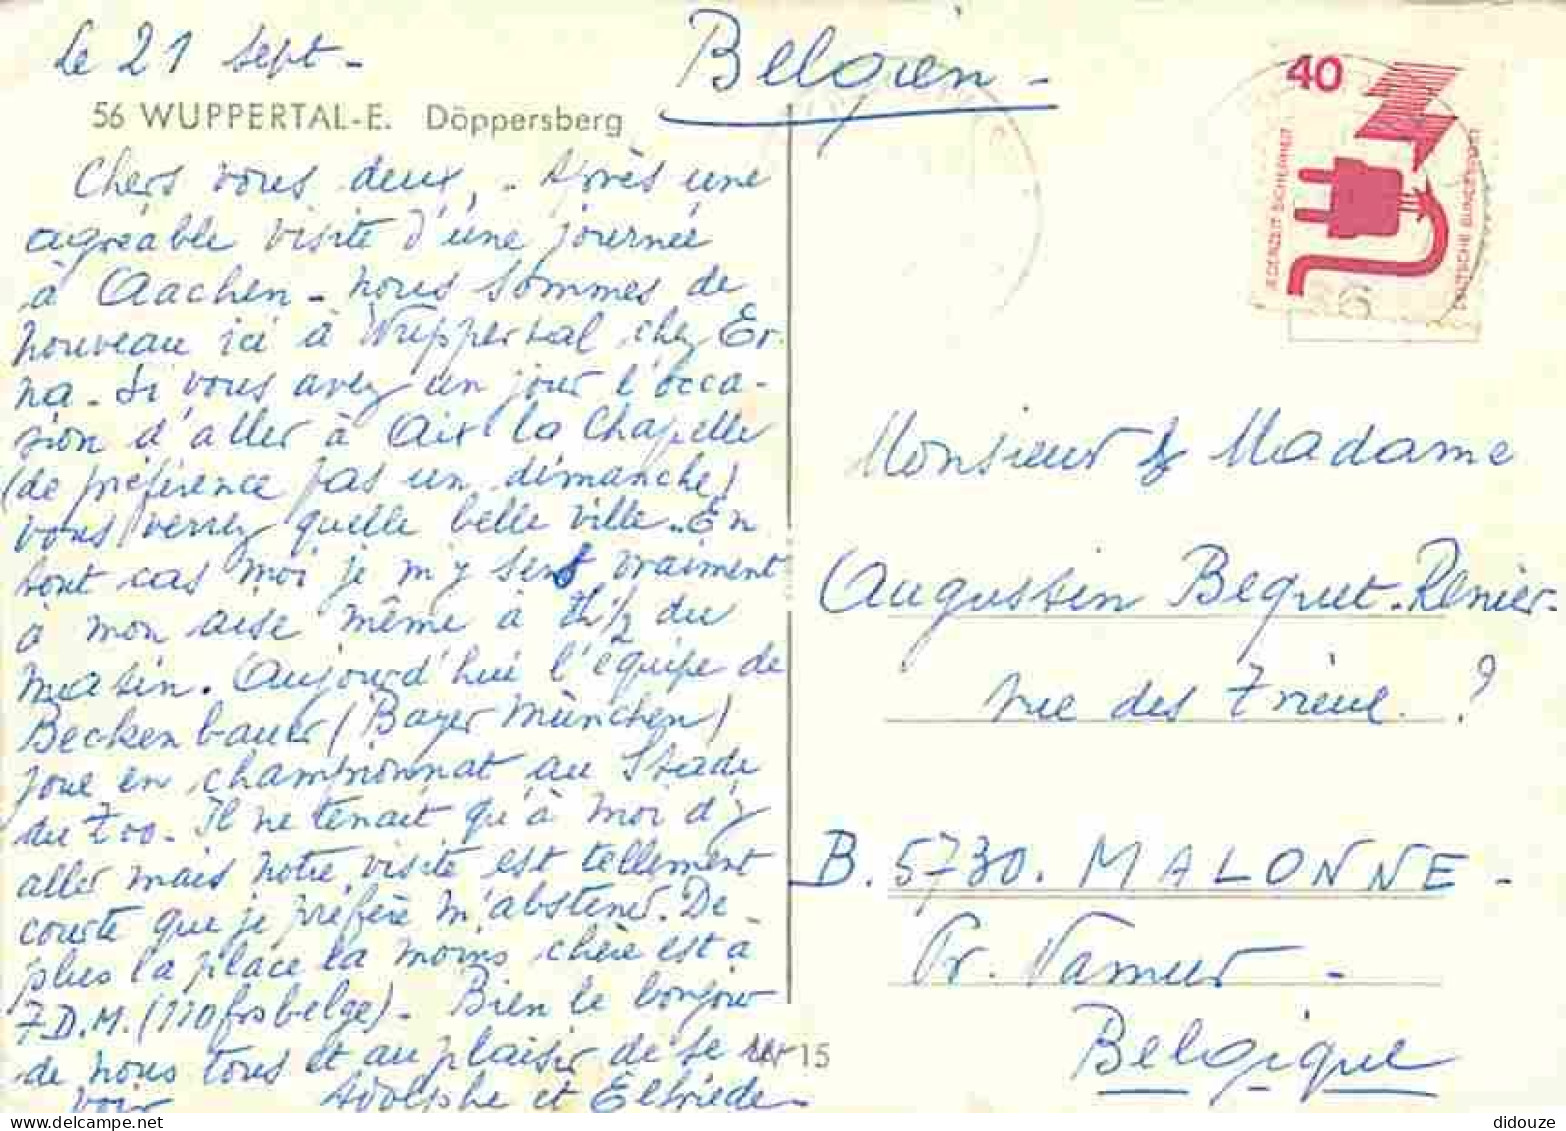 Le 21 sept -
56 WUPPERTAL-E. Döppersberg
Chers vous deux, - Après une
agréable visite d'une journée
à Aachen - nous sommes de
nouveau ici à Wuppertal chez Er-
na - Si vous avez un jour l'occa-
sion d'aller à Aix la Chapelle
(de préférence pas un dimanche)
vous verrez quelle belle ville. En
tout cas moi je m'y sens vraiment
à mon aise même à 7h½ du
matin. Aujourd'hui l'équipe de
Beckenbauer (Bayer München)
joue en championnat au Stade
du Zoo. Il ne tenait qu'à moi d'y
aller mais notre visite est tellement
courte que je préfère m'abstenir. De
plus la place la moins chère est à
7 D.M. (110 frs belge). Bien le bonjour
de nous tous et au plaisir de se
voir Adolphe et Elfriede -
15
Belgien -
40
JEDERZEIT SICHERHEIT
DEUTSCHE BUNDESPOST
Monsieur & Madame
Augustin Bequet-Renier-
rue des Trieux ?
B. 5730. MALONNE -
Pr. Namur -
Belgique
didouze